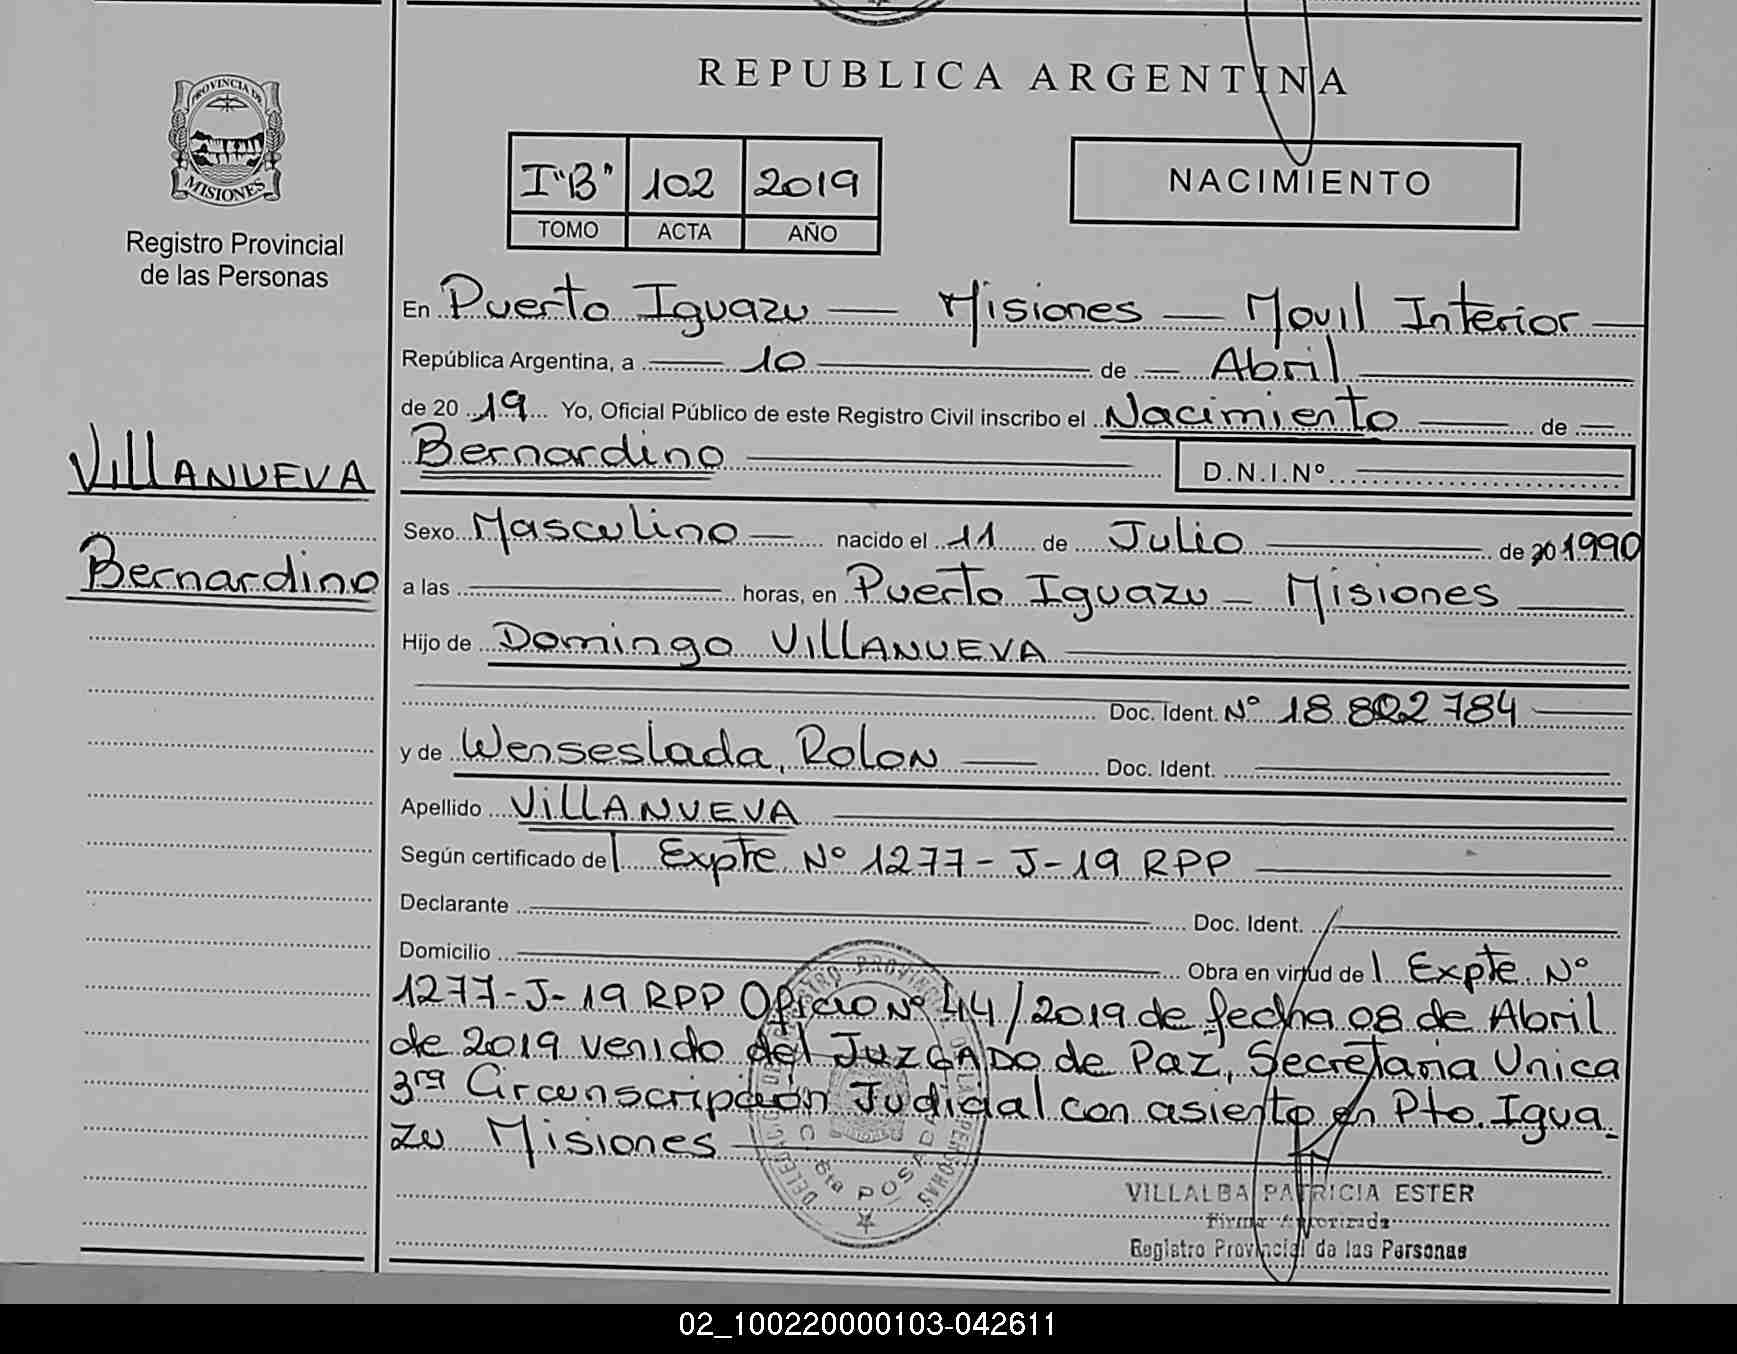 REPUBLICA ARGENTINA
PROVINCIA DE
MISIONES
Registro Provincial
de las Personas
I "B" 102 2019
TOMO ACTA AÑO
NACIMIENTO
En Puerto Iguazu — Misiones — Movil Interior —
República Argentina, a — 10 — de — Abril —
de 20 19 Yo, Oficial Público de este Registro Civil inscribo el Nacimiento — de —
Bernardino — D.N.I.Nº —
VillANUEVA
Bernardino
Sexo Masculino — nacido el 11 de Julio — de 20 1990
a las — horas, en Puerto Iguazu — Misiones —
Hijo de Domingo VillANUEVA —
Doc. Ident. Nº 18 802 784 —
y de Wenseslada, Rolon — Doc. Ident. —
Apellido VillANUEVA —
Según certificado del Expte Nº 1277-J-19 RPP —
Declarante — Doc. Ident. —
Domicilio — Obra en virtud del Expte Nº
1277-J-19 RPP Oficio Nº 44/2019 de fecha 08 de Abril
de 2019 venido del JUZGADO de Paz, Secretaria Unica
3ra Circunscripción Judicial con asiento en Pto. Igua-
zu Misiones —
POSADAS
VILLALBA PATRICIA ESTER
Firma Autorizada
Registro Provincial de las Personas
02_100220000103-042611